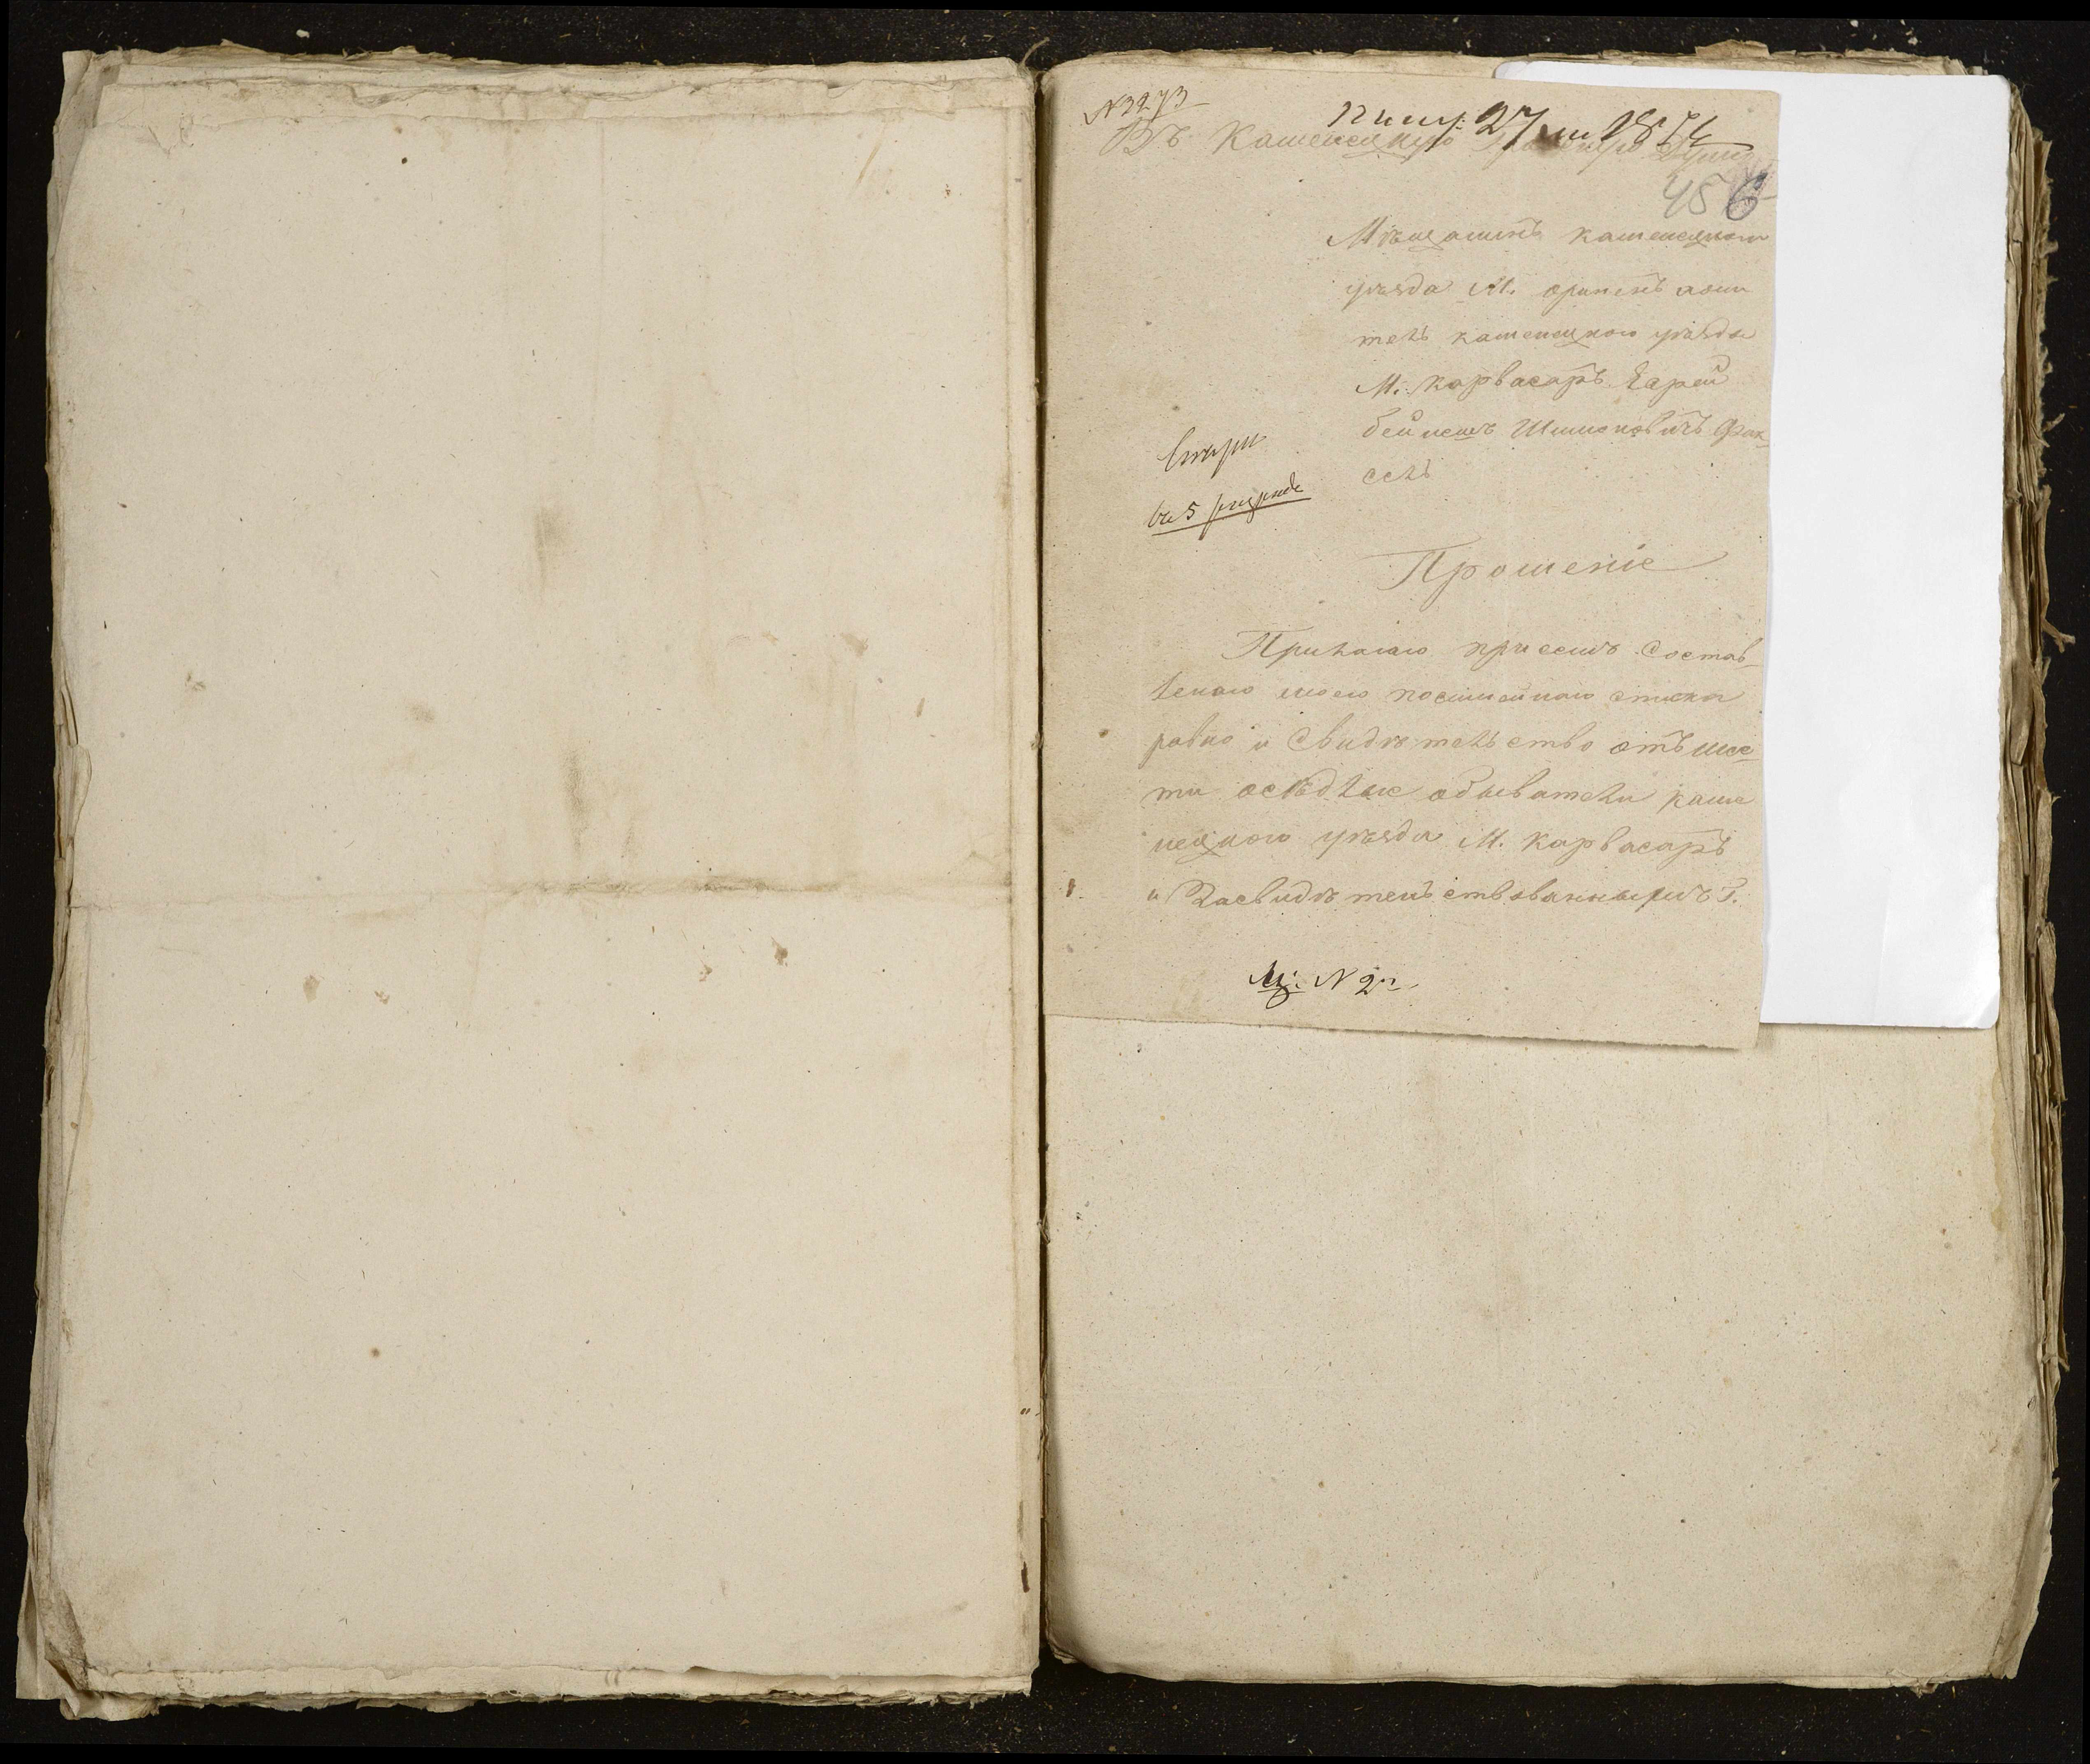 N 3273
27 1874
Въ Каменецкую Думу
456
Мѣщанинъ каменецкого
уѣзда М. Оринѣнъ жыи
тель каменецкого уѣзда
М. Карвасаръ Еврей
бейнешъ Шимоновичъ Фук-
сель
Прошеніе
Прилагаю присемъ состав-
леного моего посимейнаго списка
равно и Свидѣтельство отъ шес-
ти осѣдлые обыватели каме
нецкого уѣзда М. Карвасаръ
и Засвидѣтельствованнымъ Г.
N 2